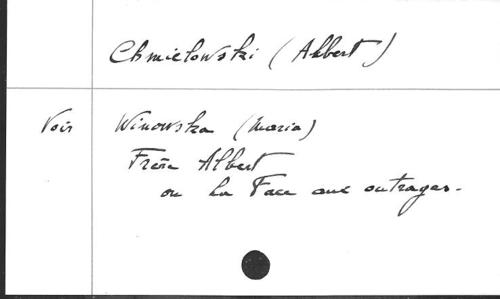 Chmielowski (Albert)
Voir Winowska (Maria)
Frère Albert
ou La Face aux outrages.